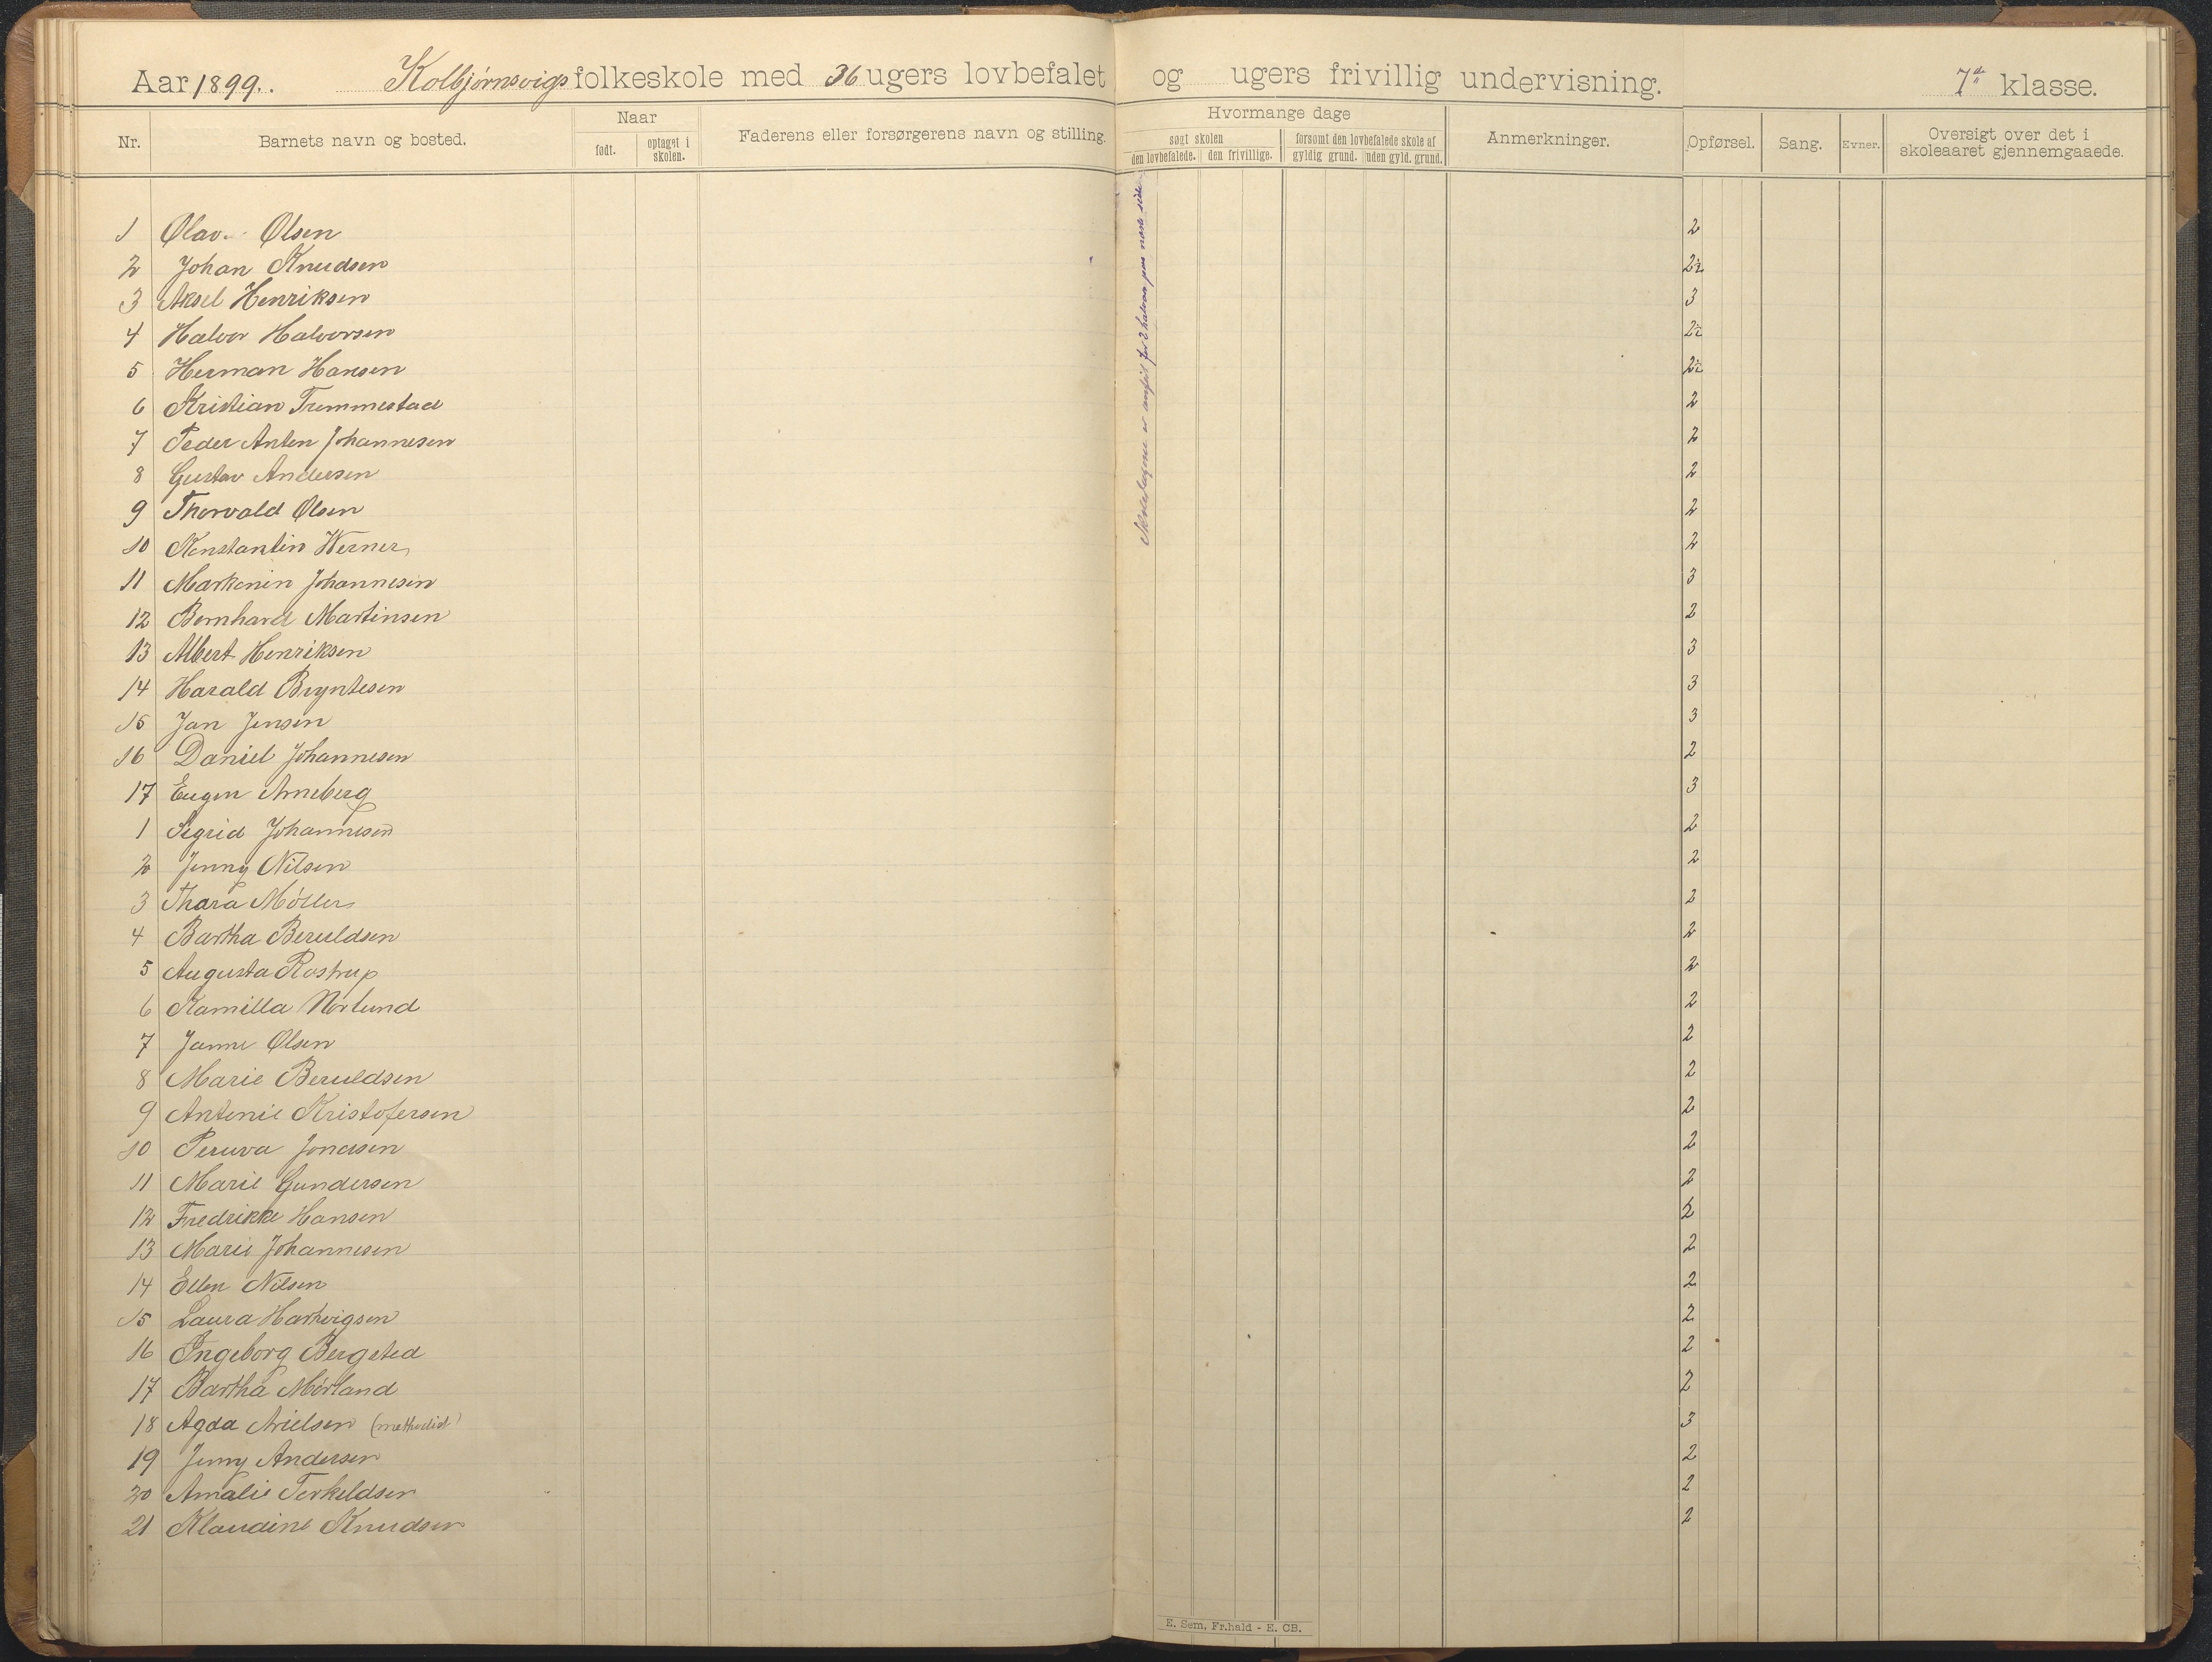 Aar 1899. Kolbjørnsvigs folkeskole med 36 ugers lovbefalet og ugers frivillig undervisning. 7de klasse.
Nr. Barnets navn og bosted. Naar Faderens eller forsørgerens navn og stilling. Hvormange dage Anmerkninger. Opførsel. Sang. Evner. Oversigt over det i skoleaaret gjennemgaaede.
født. optaget i skolen. søgt skolen forsømt den lovbefalede skole af
den lovbefalede. den frivillige. gyldig grund. uden gyld. grund.
1 Olav Olsen 2
2 Johan Knudsen 2½
3 Aksel Henriksen 3
4 Halvor Halvorsen 2½
5 Herman Hansen 2½
6 Kristian Trommestad 2
7 Peder Anton Johannesen 2
8 Gustav Andersen 2
9 Thorvald Olsen 2
10 Konstantin Werner 2
11 Johannesen 3
12 Bernhard Martinsen 2
13 Albert Henriksen 3
14 Harald Bryntesen 3
15 Jan Jensen 3
16 Daniel Johannesen 2
17 Eugen Arneberg 3
1 Sigrid Johannesen 2
2 Jenny Nilsen 2
3 Thora Møller 2
4 Bartha Beruldsen 2
5 Augusta Rostrup 2
6 Kamilla Norlund 2
7 Janne Olsen 2
8 Marie Beruldsen 2
9 Antonie Kristofersen 2
10 Peruva Jonassen 2
11 Marie Gundersen 2
12 Fredrikke Hansen 2
13 Marie Johannesen 2
14 Ellen Nilsen 2
15 Laura Hartvigsen 2
16 Ingeborg Bergsted 2
17 Bartha Mørland 2
18 Agda Arielsen (methodist) 3
19 Jenny Andersen 2
20 Amalie Terkeldsen 2
21 Klaudine Knudsen 2
Skoledagene er anført for 2 halvaar paa næste side
E. Sem, Fr.hald - E. CB.